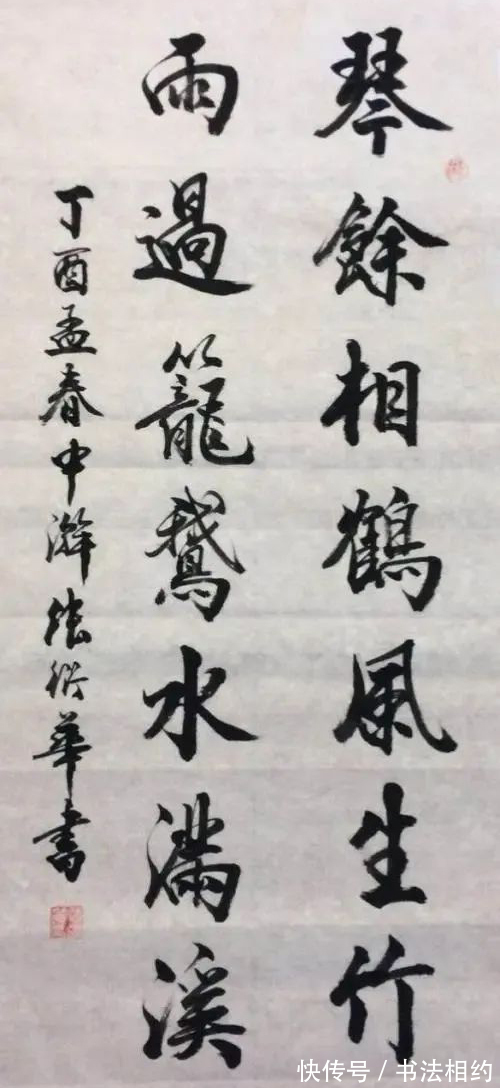 琴餘相鶴風生竹
雨過籠鵝水滿溪
丁酉孟春中澣張俗華書
快传号／书法相约